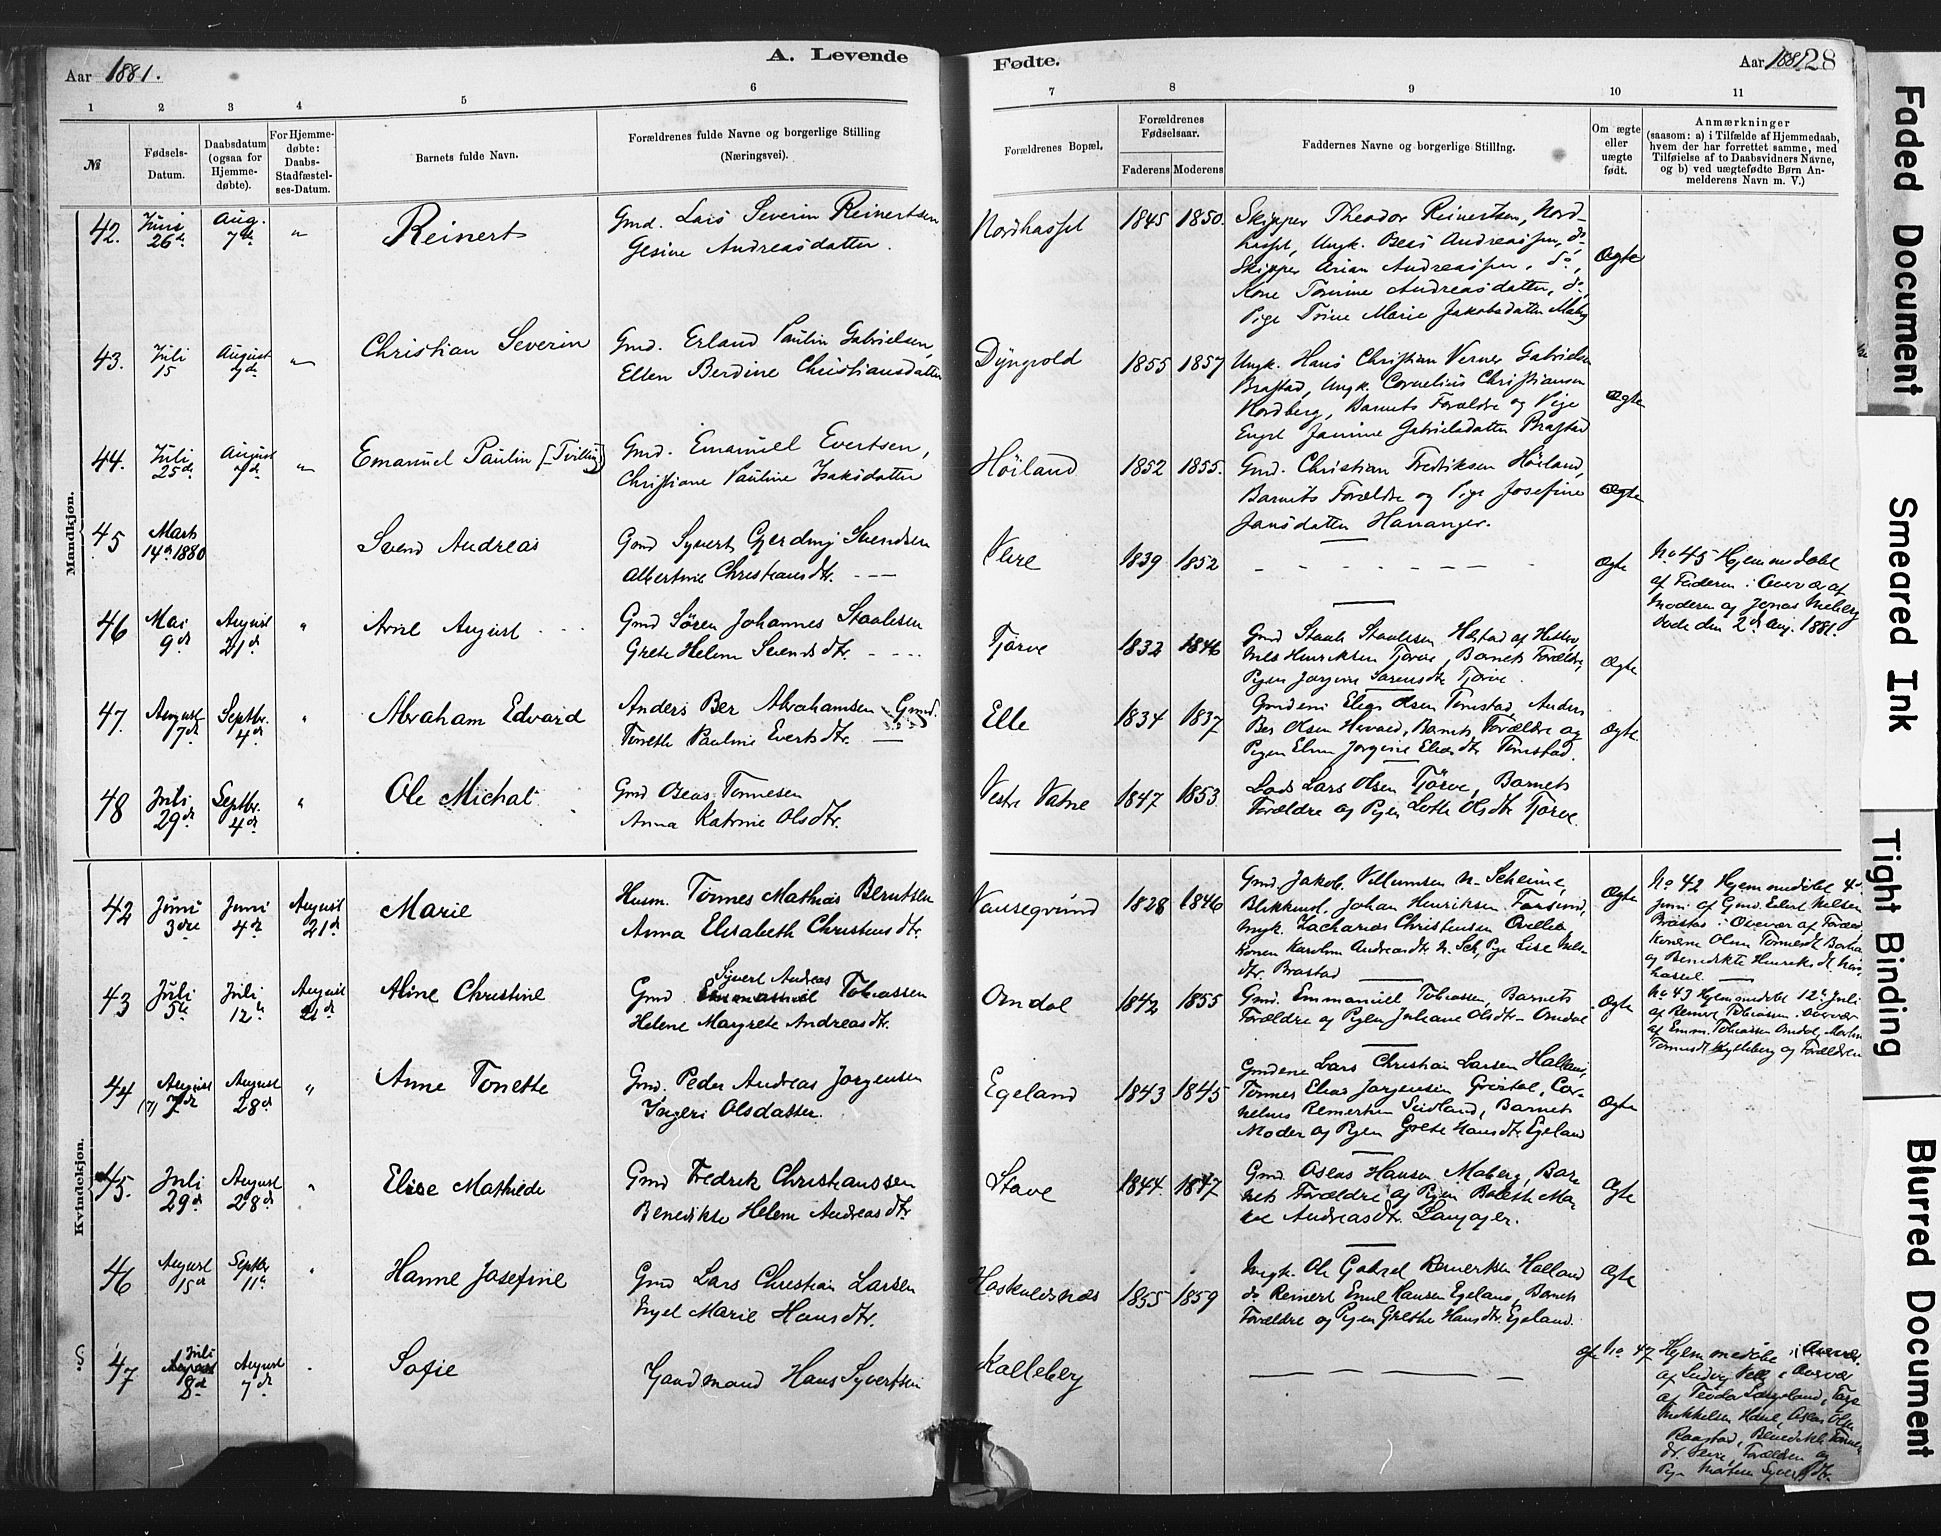 Aar 1881.
A. Levende
Fødte.
Aar 1881
28
1 2 3 4 5 6 7 8 9 10 11
№
Fødsels-
Datum.
Daabsdatum
(ogsaa for
Hjemme-
døbte).
For Hjemme-
døbte:
Daabs-
Stadfæstel-
ses-Datum.
Barnets fulde Navn.
Forældrenes fulde Navne og borgerlige Stilling
(Næringsvei).
Forældrenes Bopæl.
Forældrenes
Fødselsaar.
Faderens Moderens
Faddernes Navne og borgerlige Stilling.
Om ægte
eller
uægte
født.
Anmærkninger
(saasom: a) i Tilfælde af Hjemmedaab,
hvem der har forrettet samme, med
Tilføielse af to Daabsvidners Navne,
og b) ved uægtefødte Børn An-
melderens Navn m. V.)
Mandkjøn.
42. Juni 26de Aug. 7de " Reinert
Gmd. Lars Severin Reinertsen
Gesine Andreasdatter.
Nordhassel 1845 1850.
Skipper Theodor Reinertsen, Nord-
hassel, Ungk. Beas Andreassen, do,
Skipper Arian Andreassen, do,
Kone Tomine Andreasdatter, do,
Pige Trine Marie Jakobsdatter Maberg
Ægte
43. Juli 15 August 7de " Christian Severin
Gmd. Erland Paulin Gabrielsen,
Ellen Berdine Christiansdatter
Dyngvold 1855 1857
Ungk. Hans Christian Verner Gabrielsen
Brastad, Ungk. Cornelius Christiansen
Nordberg, Barnets Forældre og Pige
Engel Janine Gabrielsdatter Brastad
Ægte
44. Juli 25de August 7de " Emanuel Paulin [Tvilling]
Gmd. Emanuel Evertsen,
Christiane Pauline Isaksdatter
Höiland 1852 1855.
Gmd. Christian Fredriksen Höiland,
Barnets Forældre og Pige Josefine
Jansdatter Hananger.
Ægte
45 Marts 14de 1880 Svend Andreas
Gmd Syvert Gjerding Svendsen
Albertine Christiansdtr.
Vere 1839 1852
Ægte
No 45 Hjemmedøbt
af Faderen i Overvær af
Moderen og Jonas Meberg
Døde den 2de Aug. 1881.
46 Mai 9de August 21de " Arne August
Gmd Sören Johannes Staalesen
Grete Helene Svendsdtr.
Tjörve 1832 1846
Gmd Staale Staalesen Hæstad af Hitterö,
Nils Henriksen Tjörve, Barnets Forældre,
Pigen Jörgine Sörensdtr Tjörve.
Ægte
47. August 7de Septbr. 4de " Abraham Edvard
Anders Ber Abrahamsen Gmd.
Tonette Pauline Evertsdtr.
Elle 1834 1837
Gmdene Elias Olsen Tomstad, Anders
Ber Olsen Hervold, Barnets Forældre og
Pigen Elene Jörgine Eliasdtr Tomstad.
Ægte
48 Juli 29de Septbr. 4de " Ole Michal
Gmd Oseas Tonnesen
Anna Katrine Olsdtr.
Vestre Vatne 1847 1853.
Lods Lars Olsen Tjörve, Barnets
Forældre og Pigen Lotte Olsdtr Tjörve.
Kvindekjøn.
42 Juni 3die Juni 4de August 21de Marie
Husm. Tönnes Mathias Berntsen
Anna Elisabeth Christensdtr.
Vansegrund 1828 1846
Gmd. Jakob Villumsen N. Scheime,
Blikkensl. Johan Henriksen Farsund,
Ungk. Zacharias Christensen Ovellie
Konen Karoline Andreasdtr N. Sch, Pige Lise Nils-
dtr. Brastad
Ægte
No 42 Hjemmedöbt 4de
Juni af Gmd. Eilert Nilsen
Brastad i Overvær af Forældre,
Konerne Olene Tönnesdtr Borhaug
og Benedikte Henriksdtr
43 Juli 5te Juli 12te August 21de Aline Christine
Gmd Syvert Andreas Tobiassen
Helene Margrete Andreasdtr.
Omdal 1842 1855
Gmd. Emmanuel Tobiassen, Barnets
Forældre og Pigen Juliane Olsdtr Omdal
Ægte
No 43 Hjemmedöbt 12te Juli
af Reinert Tobiassen i Overvær
af Emm. Tobiassen Omdal, Marthe
Tönnesdtr Kjelleberg og Forældrene
44 (?) August 7de August 28de " Anne Tonette
Gmd. Peder Andreas Jörgensen
Ingeri Olsdatter.
Egeland 1843 1845
Gmdene Lars Christian Larsen Halland,
Tönnes Elias Jörgensen Grostøl, Cor-
nelius Reinertsen Sudland, Barnets
Moder og Pigen Grete Hansdtr Egeland
Ægte
45. Juli 29de August 28de " Elise Mathilde
Gmd Fredrik Christianssen
Benedikte Helene Andreasdtr.
Stave 1844. 1847
Gmd. Oseas Hansen Maberg, Bar-
nets Forældre og Pigen Bolette Ma-
rie Andreasdtr. Langager.
Ægte
46 August 15de Septbr 11te " Hanne Josefine
Gmd Lars Christian Larsen
Engel Marie Hansdtr.
Haskuldsnæs 1855 1859
Ungk. Ole Gabriel Reinertsen Halland
do Reinert Emil Hansen Egeland, Barnets
Forældre og Pigen Grethe Hansdtr. Egeland.
Ægte
47 Juli 8de August 7de Sofie
Gaardmand Hans Syvertsen
Kalleberg
No 47 Hjemmedöbt i Overvær
af Ludvig i Overvær
af Teodor
Mikkelsen
Raastad, Benedikte Tönnes-
dtr. Forældrene og
Pige Syvertsdtr.
Faded Document
Smeared Ink
Tight Binding
Blurred Document